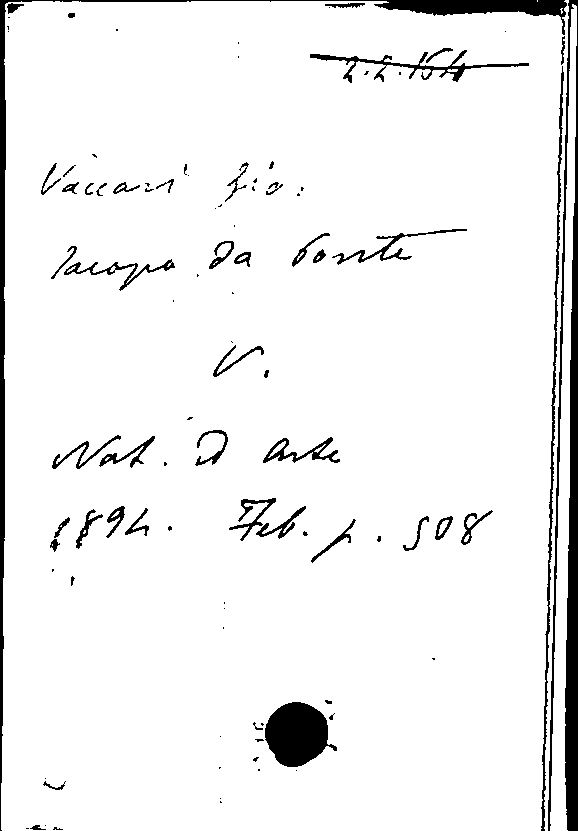 2.2.154
Vaccari Gio.
Iacopo da Ponte
V.
Nat. ed Arte
1894. Feb. p. 508